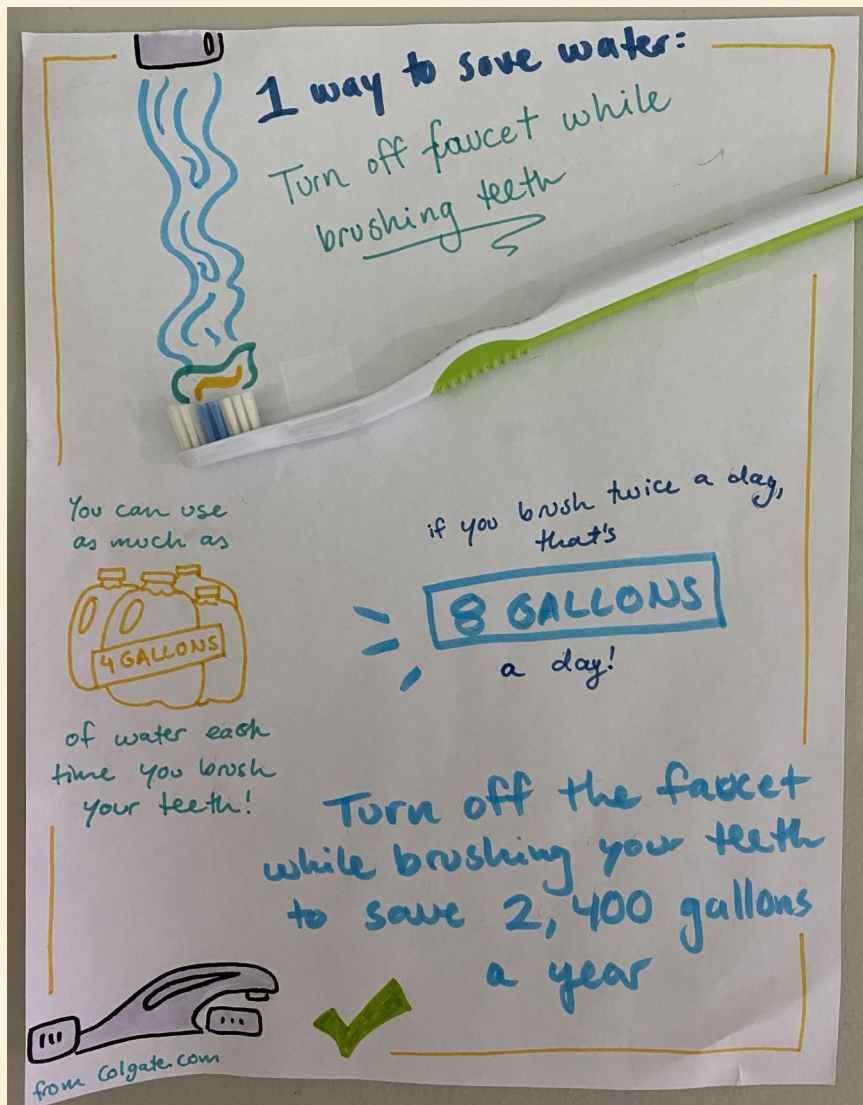 1 way to save water:
Turn off faucet while
brushing teeth
You can use
as much as
4 GALLONS
of water each
time you brush
your teeth!
if you brush twice a day,
that's
8 GALLONS
a day!
Turn off the faucet
while brushing your teeth
to save 2,400 gallons
a year
from Colgate.com